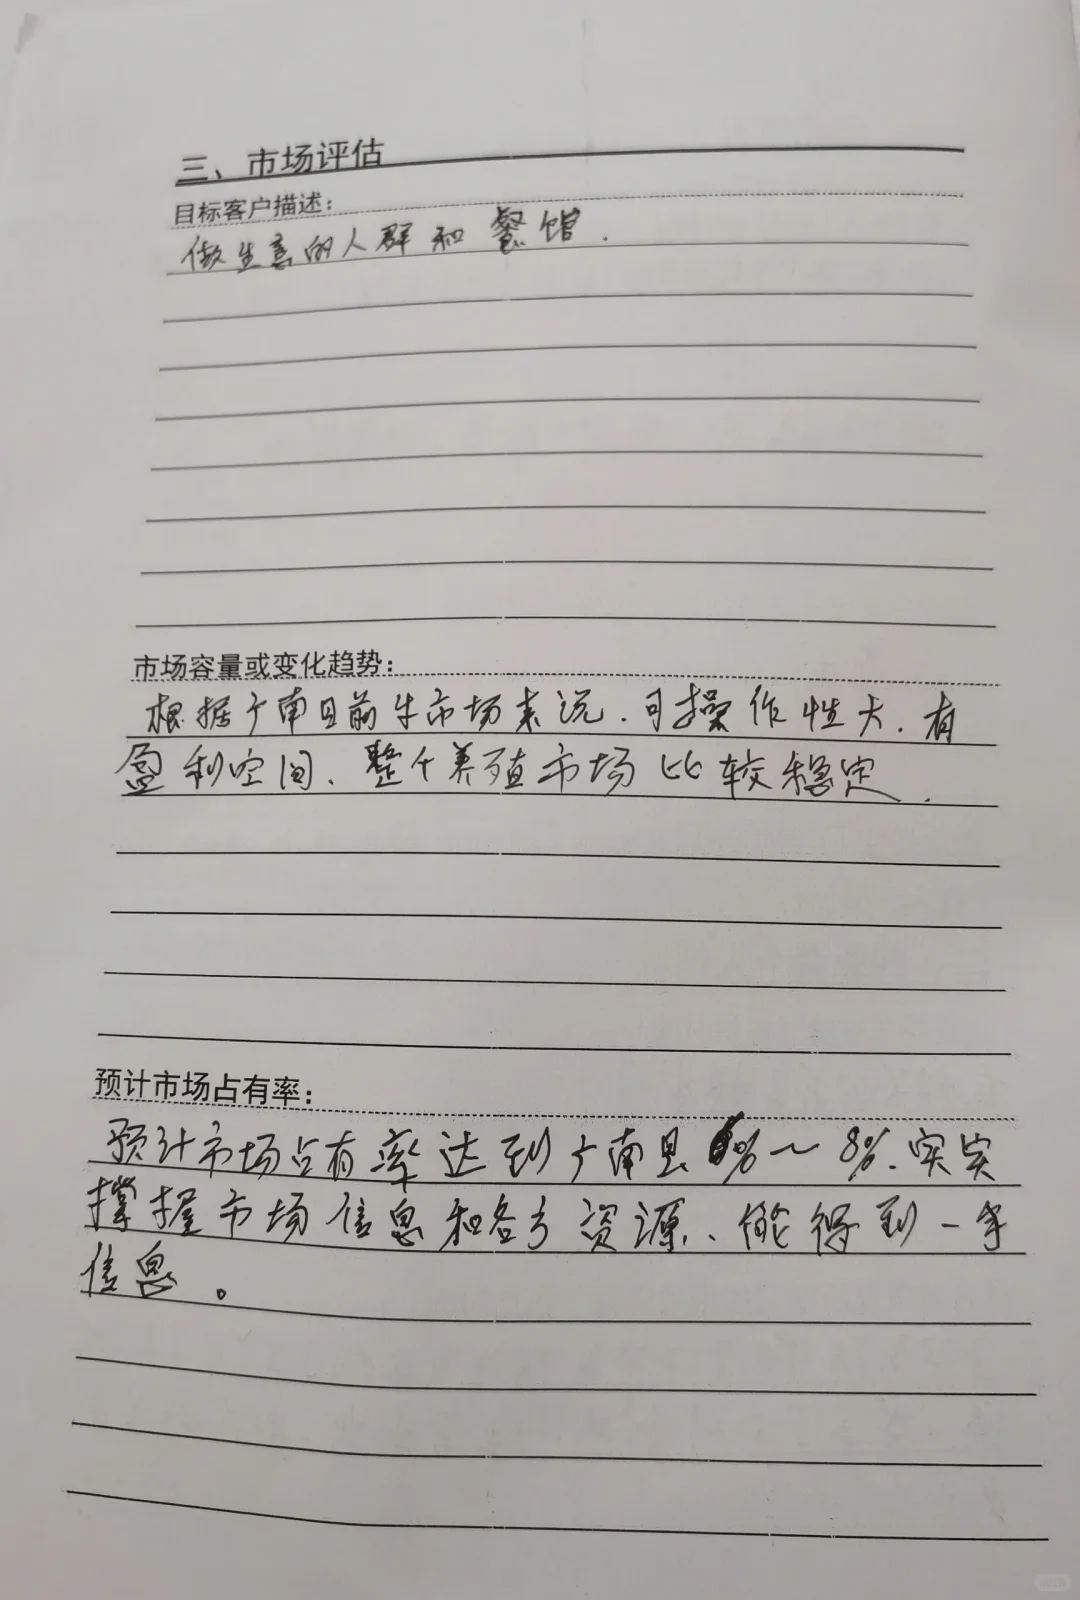 三、市场评估
目标客户描述：
做生意的人群和餐馆.
市场容量或变化趋势：
根据广南目前牛市场来说.可操作性大.有
盈利空间、整个养殖市场比较稳定.
预计市场占有率：
预计市场占有率达到广南县6%～8%.实实
掌握市场信息和各方资源、能得到一手
信息。